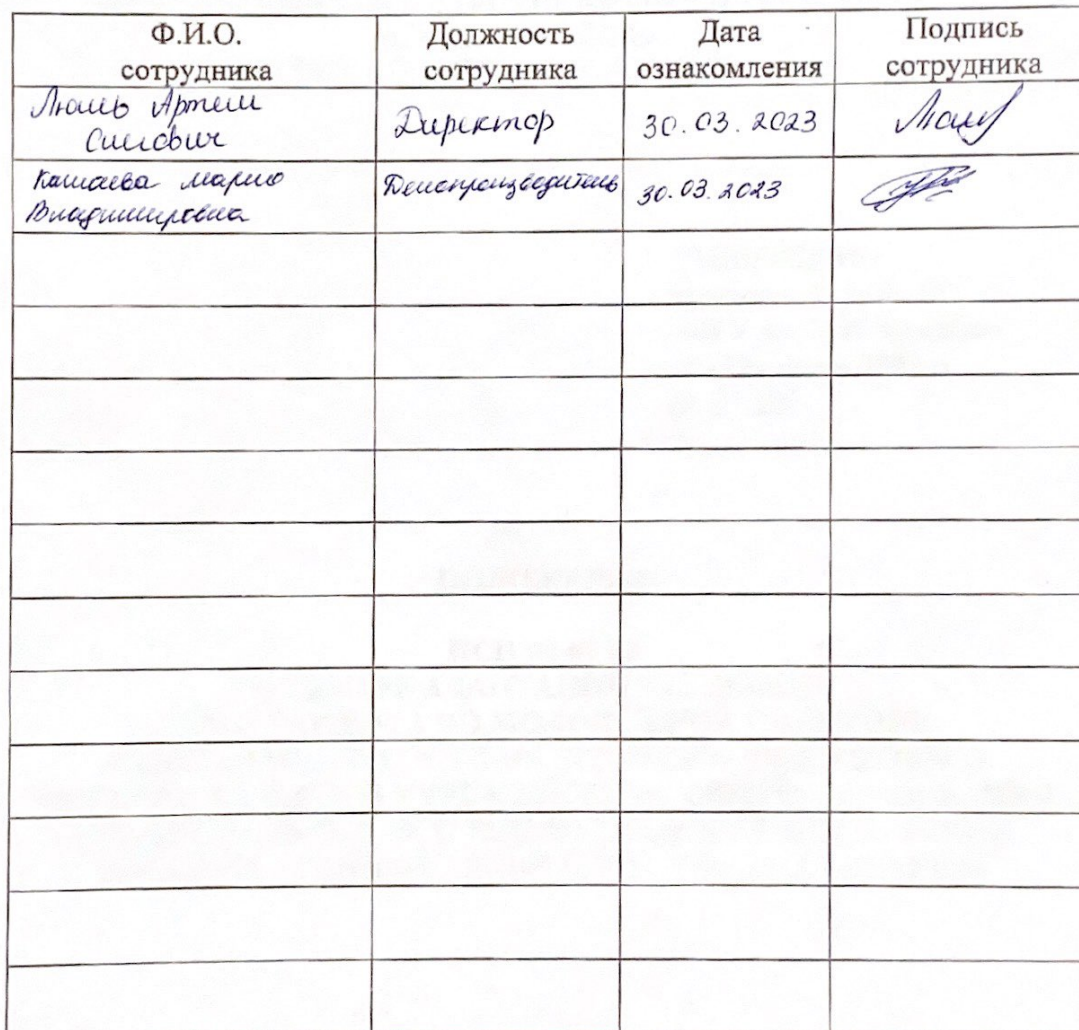 Ф.И.О.
сотрудника
Должность
сотрудника
Дата
ознакомления
Подпись
сотрудника
Артем
Директор
30.03.2023
Владимировна
Делопроизводитель
30.03.2023